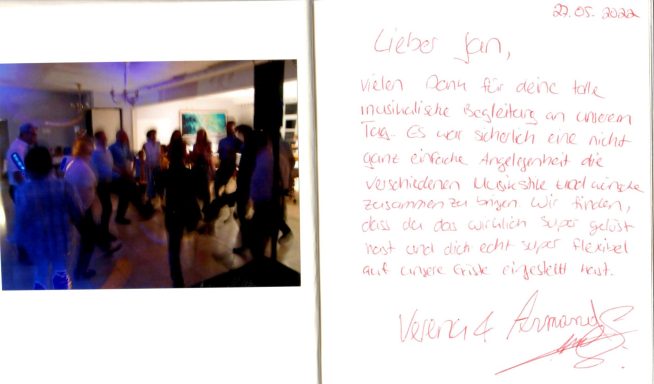 27.05.2022
Lieber Jan,
vielen Dank für deine tolle
musikalische Begleitung an unserem
Tag. Es war sicherlich eine nicht
ganz einfache Angelegenheit die
verschiedenen Musikstile und wünsche
zusammen zu bringen. Wir finden,
dass du das wirklich super gelöst
hast und dich echt super flexibel
auf unsere Gäste eingestellt hast.
Verena & Armand